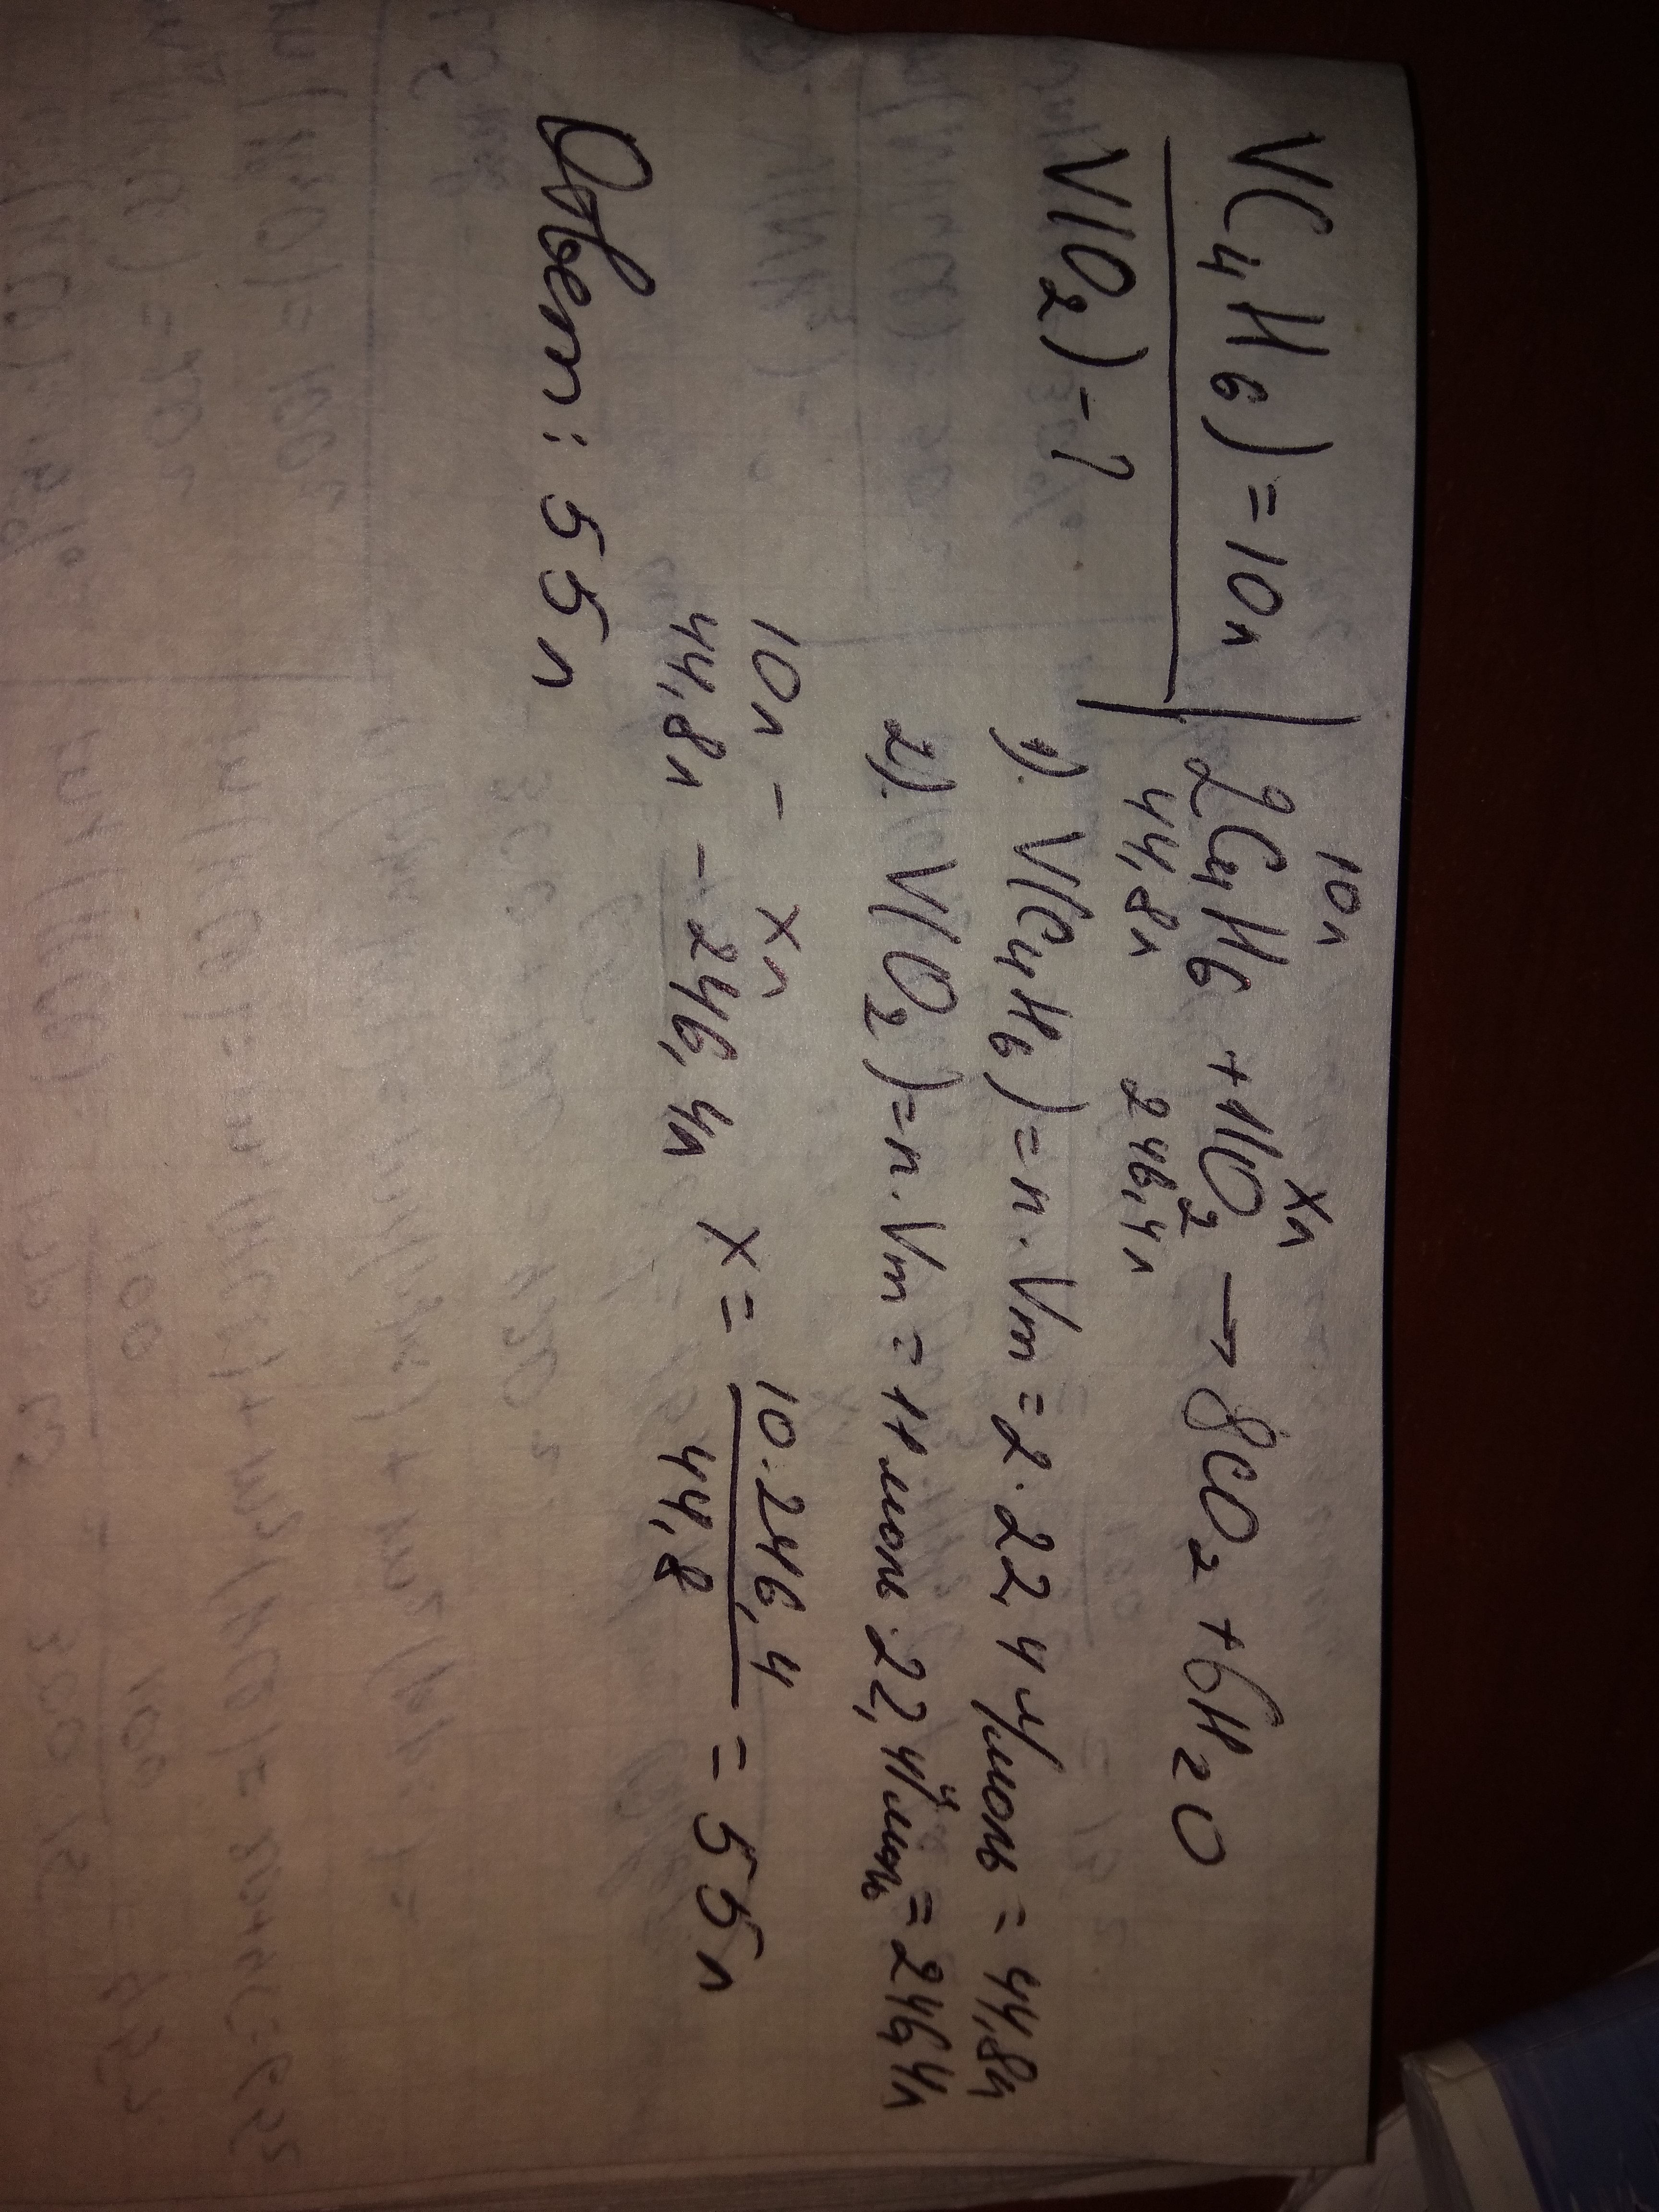 VC₄H₆) = 10л
V(O₂) - ?
10л xл
2C₄H₆ + 11O₂ → 8CO₂ + 6H₂O
44,8л 246,4л
1). V(C₄H₆) = n · Vm = 2 · 22,4 л/моль = 44,8л
2). V(O₂) = n · Vm = 11 моль · 22,4 л/моль = 246,4л
10л - xл
44,8л - 246,4л x = 10 · 246,4 / 44,8 = 55л
Ответ: 55л